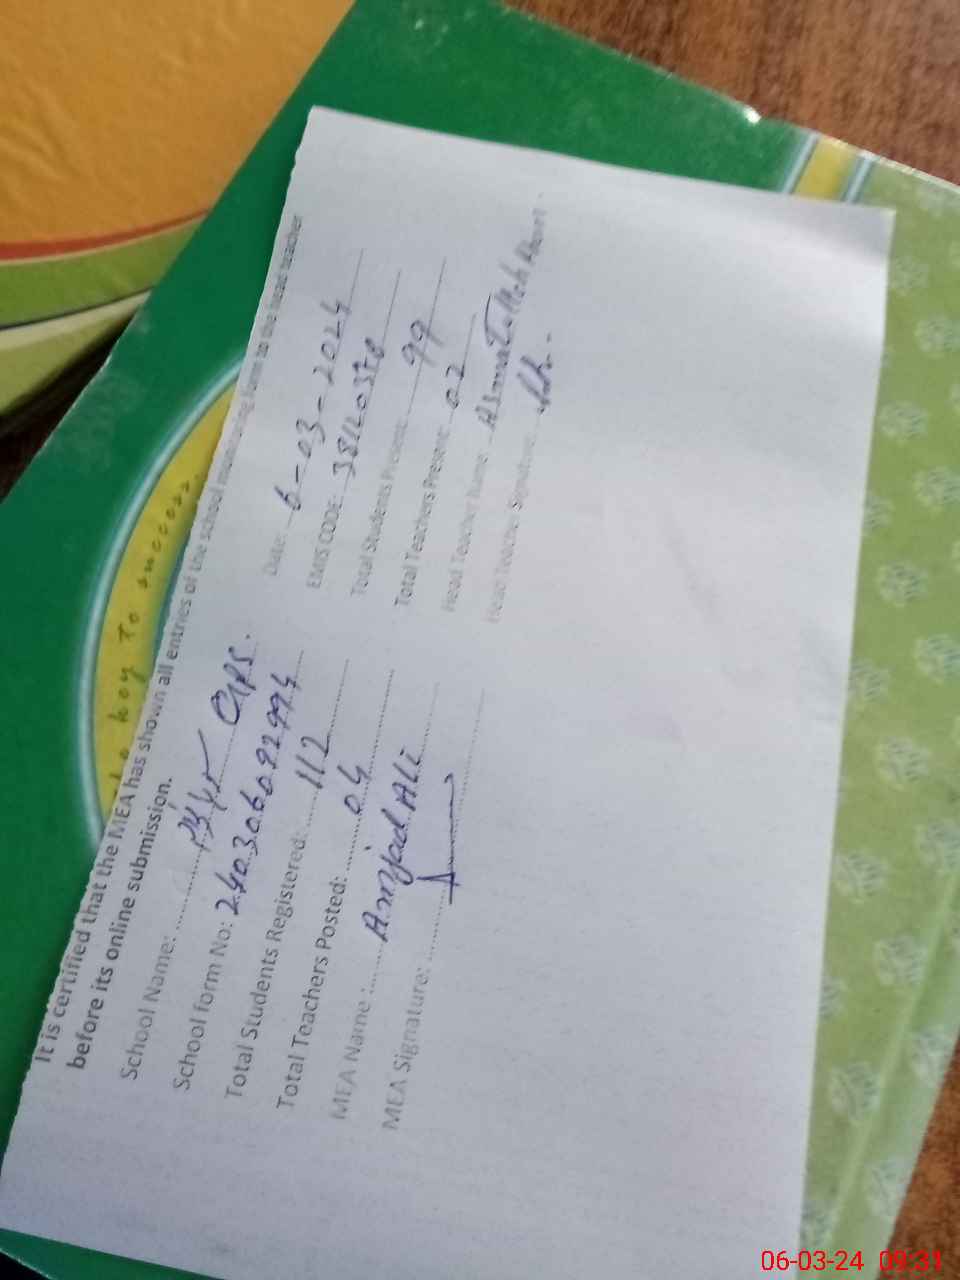 It is certified that the MEA has shown all entries of the school monitoring form to the head teacher
before its online submission.
School Name: GPS.
Date: 6-03-2024
School form No: 24030609299 4
EMIS CODE:
Total Students Registered: 112
Total Students Present: 99
Total Teachers Posted: 04
Total Teachers Present: 02
MEA Name: Amjad Ali
Head Teacher Name:
MEA Signature:
Head Teacher Signature:
key To success.
06-03-24 09:31